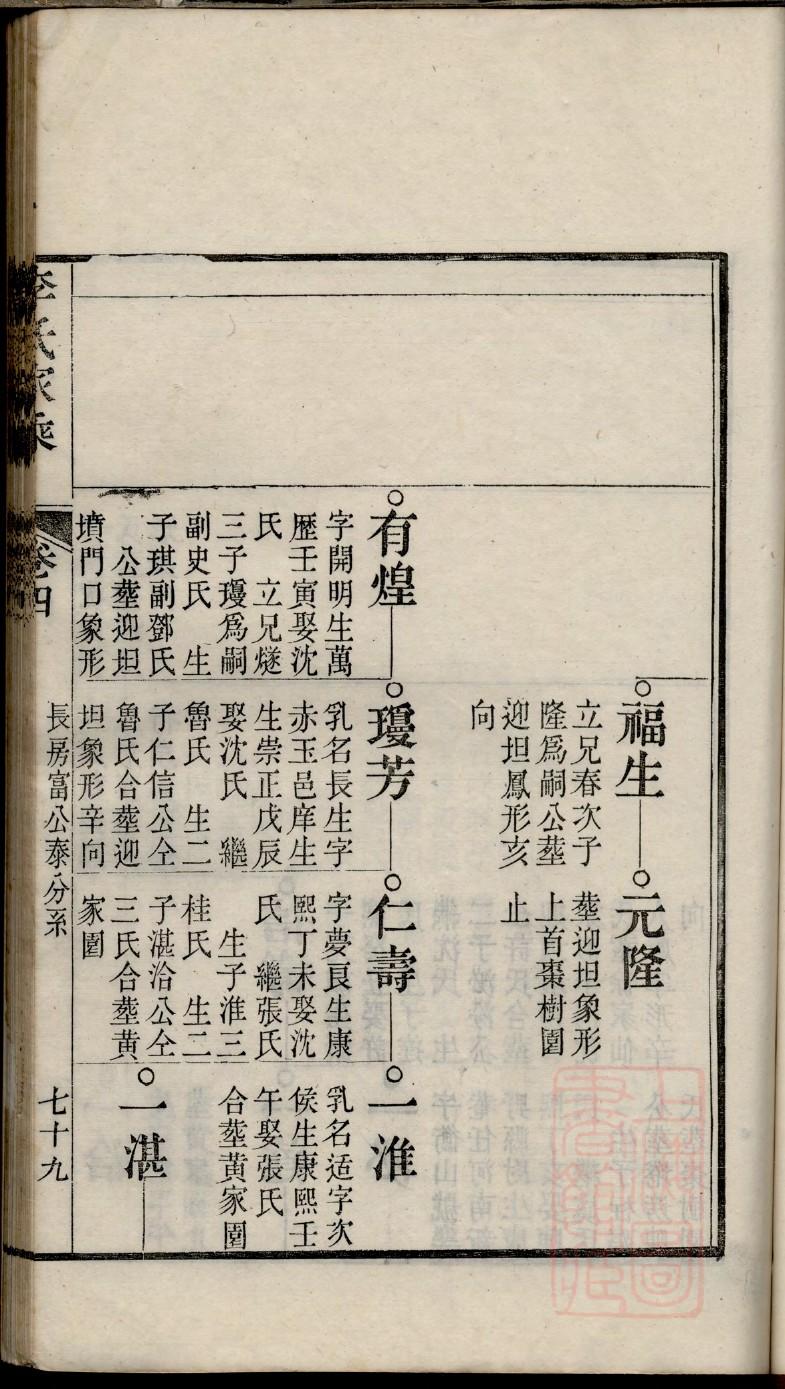 福生
立兄春次子
隆爲嗣公塟
迎坦鳳形亥
向
元隆
塟迎坦象形
上首棗樹園
止
有煌
字開明生萬
歷壬寅娶沈
氏　立兄燧
三子瓊爲嗣
副史氏　生
子琪副鄧氏
公塟迎坦
墳門口象形
瓊芳
乳名長生字
赤玉邑庠生
生崇正戊辰
娶沈氏　繼
魯氏　生二
子仁信公仝
魯氏合塟迎
坦象形辛向
仁壽
字夢良生康
熙丁未娶沈
氏　繼張氏
生子淮三
桂氏　生二
子湛洽公仝
三氏合塟黄
家園
一淮
乳名适字次
侯生康熙壬
午娶張氏
合塟黄家園
一湛
李氏家乘
卷四
長房富公泰分系
七十九